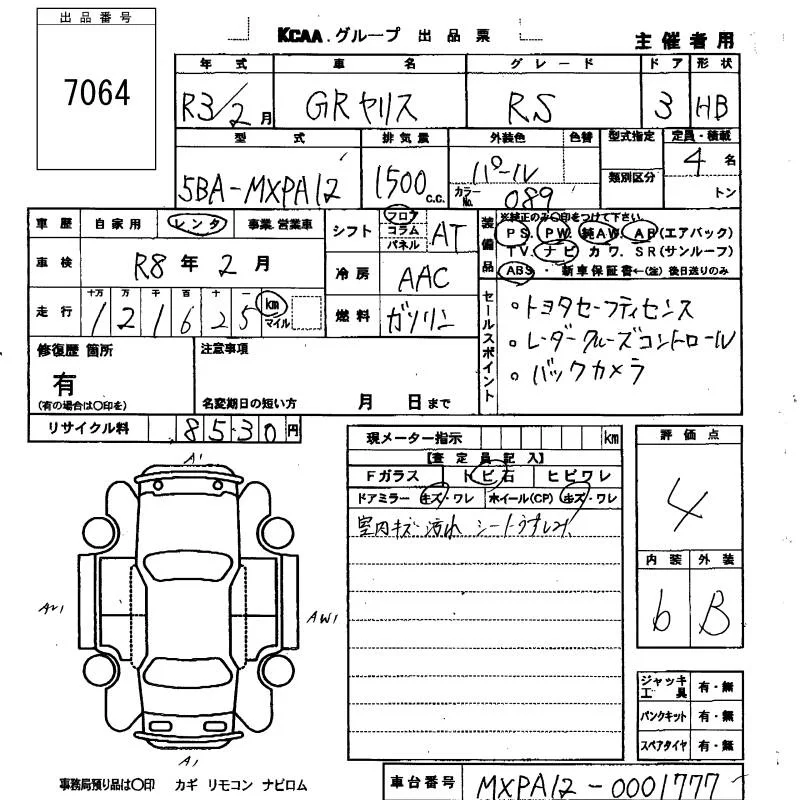 出品番号
7064
KCAA.グループ 出品票
主催者用
年式 車名 グレード ドア 形状
R3/2月 GRヤリス RS 3 HB
型式 排気量 外装色 色替 型式指定 定員・積載
5BA-MXPA12 1500c.c. パール 類別区分 4名
カラーNo. 089 トン
車歴 自家用 レンタ 事業.営業車
車検 R8年2月
走行 十万 万 千 百 十 一
121625 km マイル
シフト フロア コラム パネル AT
冷房 AAC
燃料 ガソリン
装備品 ※純正のみ○印をつけて下さい
PS. PW. 純AW. AB(エアバック)
TV. ナビ カワ. SR(サンルーフ)
ABS・新車保証書←(注)後日送りのみ
セールスポイント
○トヨタセーフティセンス
○レーダークルーズコントロール
○バックカメラ
修復歴 箇所
有
(有の場合は○印を)
注意事項
名変期日の短い方 月 日まで
リサイクル料 8530円
現メーター指示 km
【査定員記入】
Fガラス トビ石 ヒビワレ
ドアミラー キズ・ワレ ホイール(CP) キズ・ワレ
室内キズ 汚れ シートうすしみ
評価点
4
内装 外装
6 B
A1
A21
AW1
A1
ジャッキ工具 有・無
パンクキット 有・無
スペアタイヤ 有・無
事務局預り品は○印 カギ リモコン ナビロム
車台番号 MXPA12-0001777